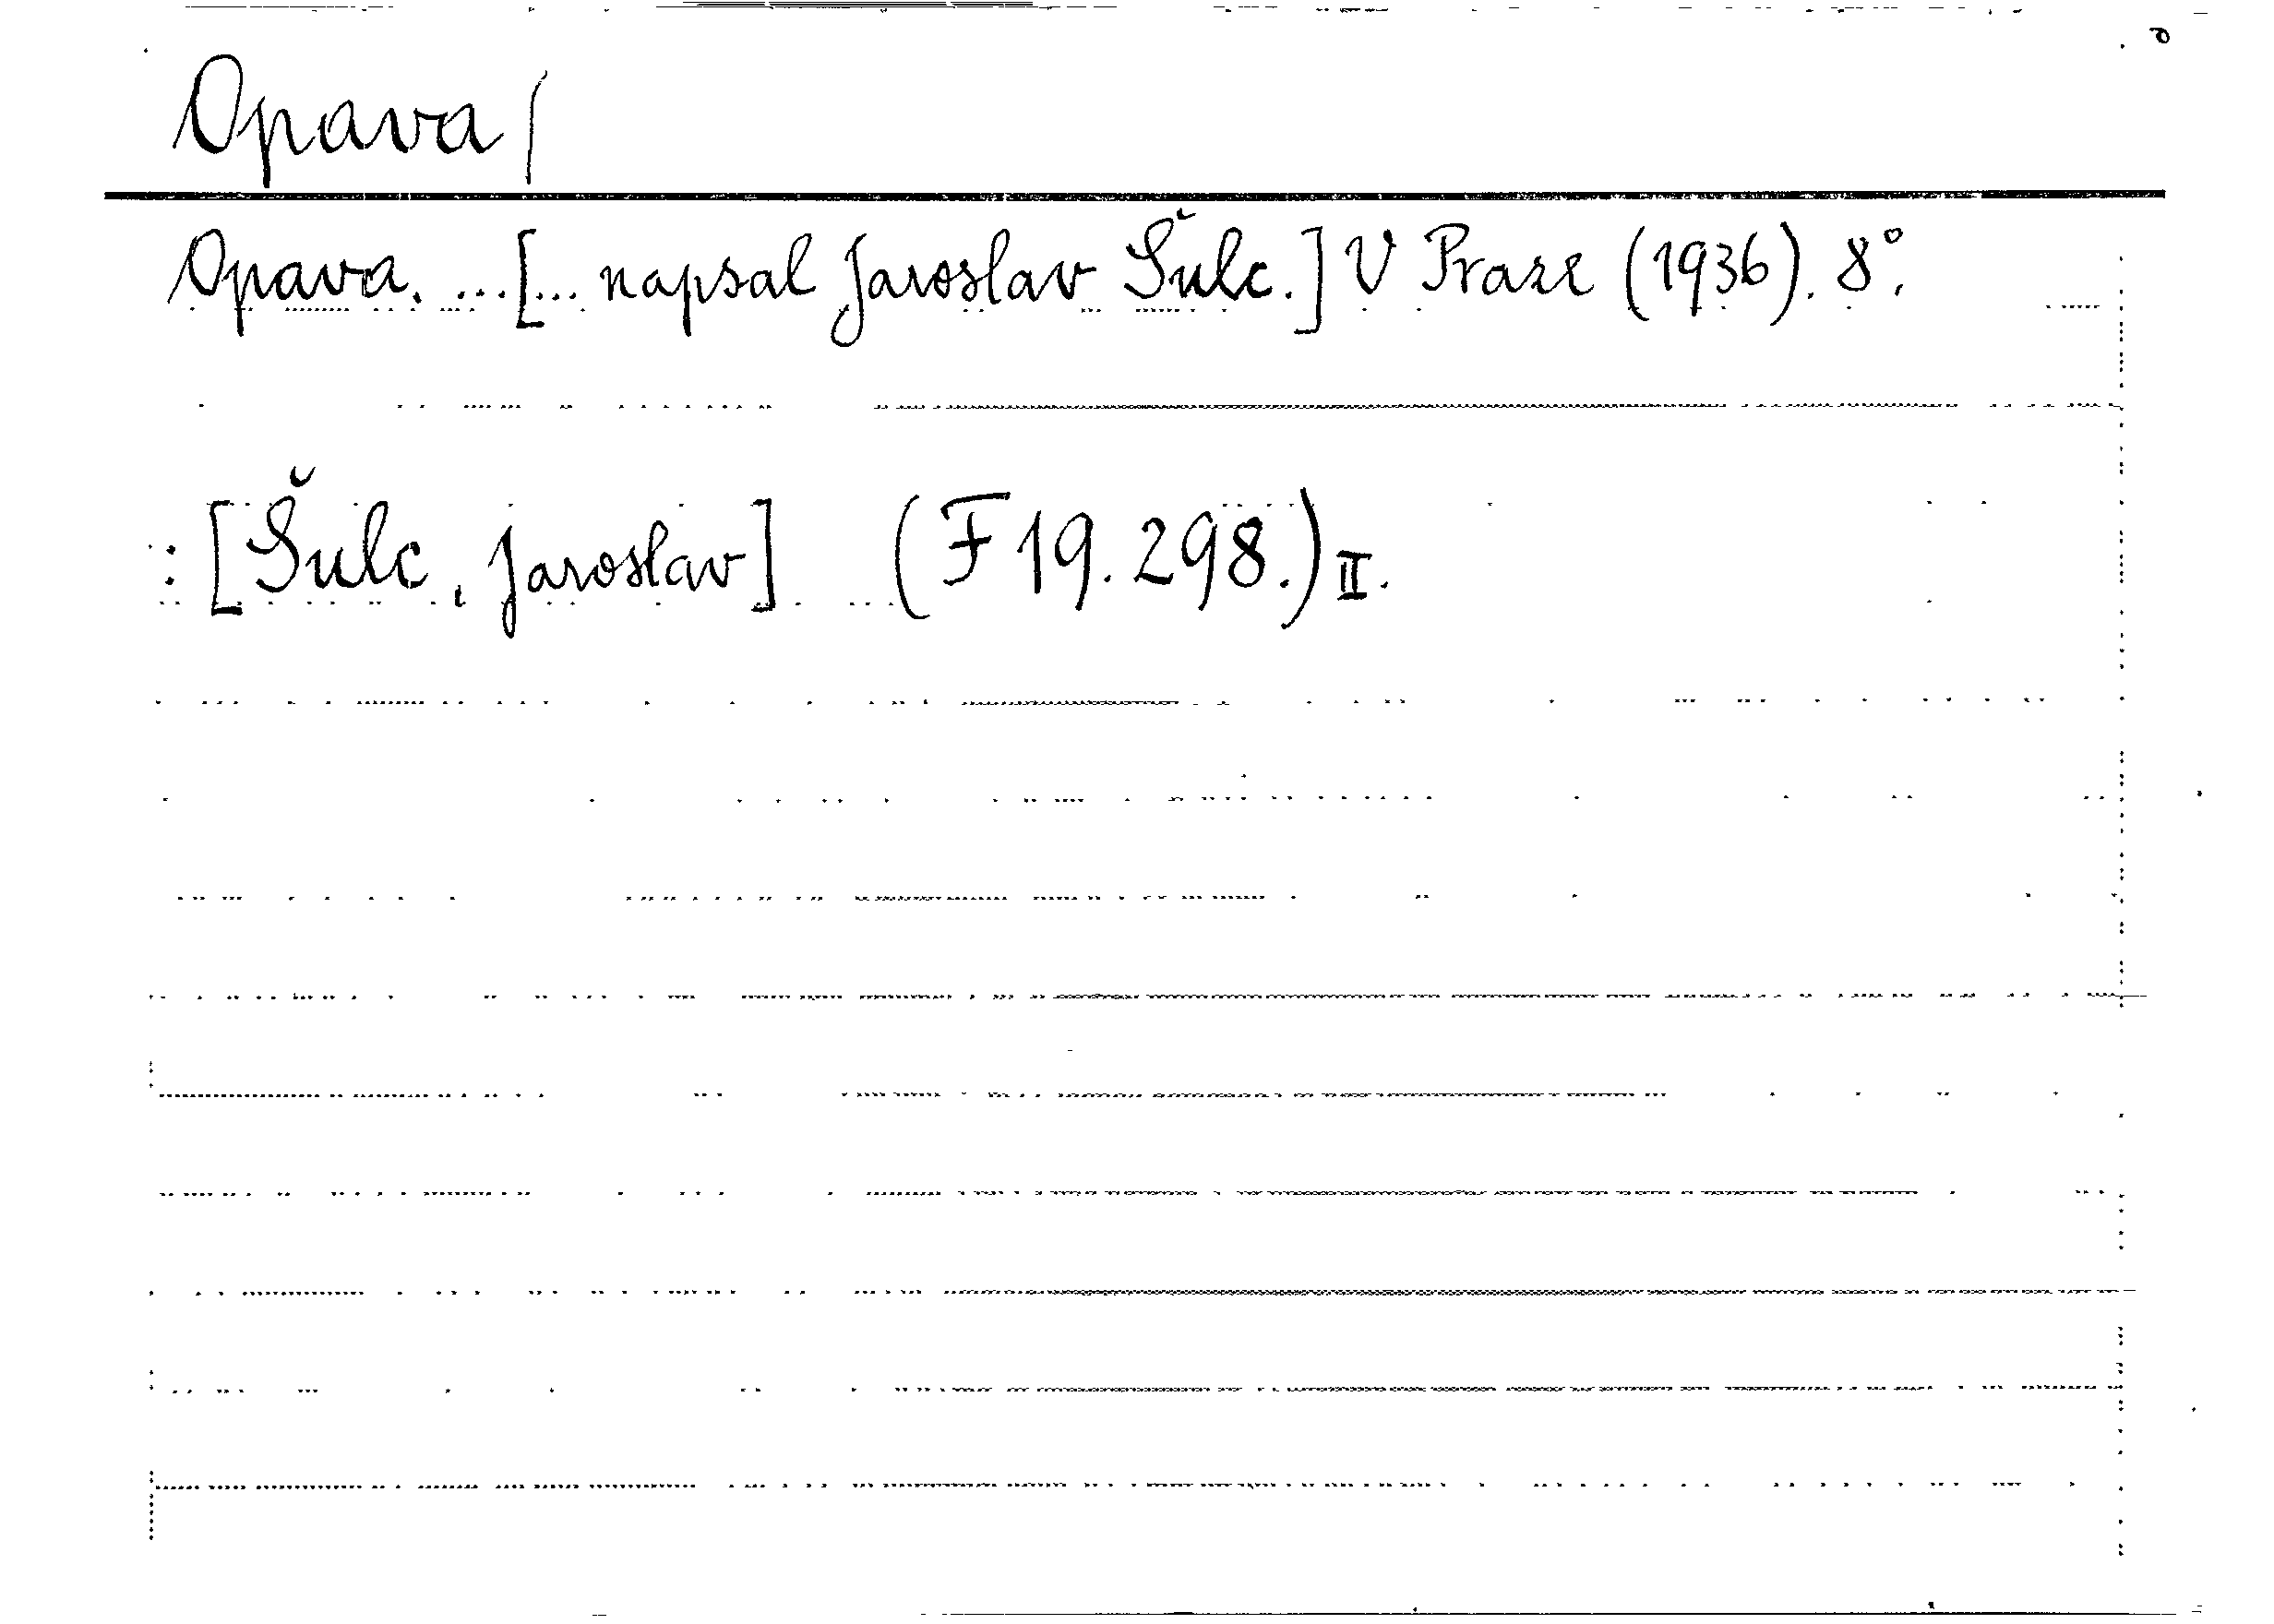 Opava/
Opava. ...[... napsal Jaroslav Šulc.] V Praze (1936). 8°.
: [Šulc, Jaroslav] (F 19.298.) II.